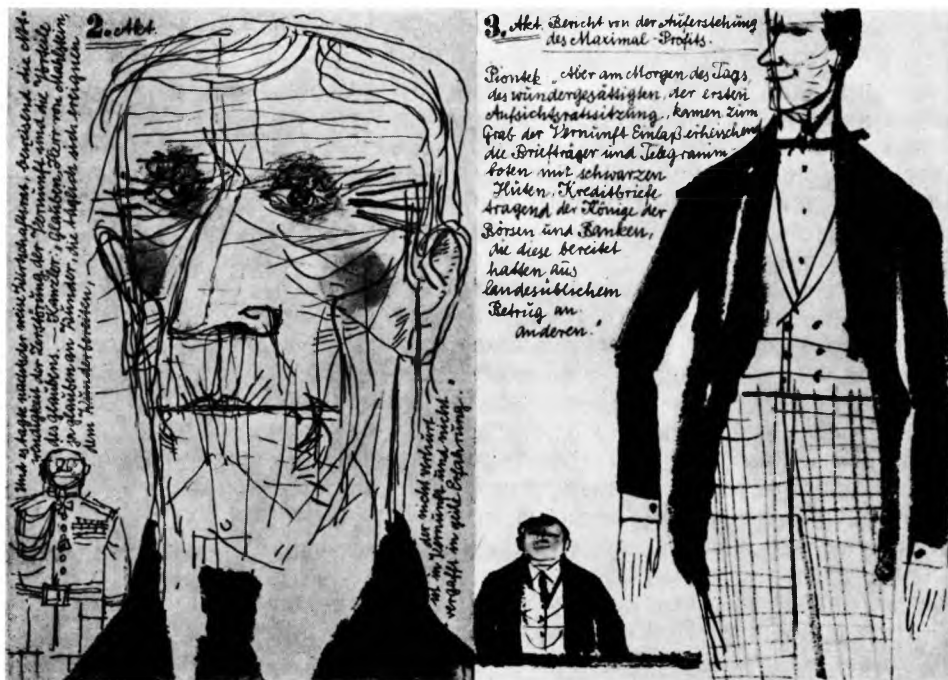 2. Akt.
Und es tagte der beweisend die Not-
wendigkeit der Zerstörung der Vernunft und die Vorteile
des Glaubens. — Kanzler: „Glauben, Herr von
zu glauben an Wunder, die täglich sich ereignen
dem Wunderbereiten,
der nicht verhurt
ist in Vernunft und nicht
vergafft in geile Erfahrung."
3. Akt. Bericht von der Auferstehung
des Maximal-Profits.
Piontek „Aber am Morgen des Tags,
des wundergesättigten, der ersten
Aufsichtsratssitzung, kamen zum
Grab der Vernunft Einlaß erheischend
die Briefträger und Telegramm-
boten mit schwarzen
Hüten, Kreditbriefe
tragend der Könige der
Börsen und Banken,
die diese bereitet
hatten aus
landesüblichem
Betrug an
anderen."